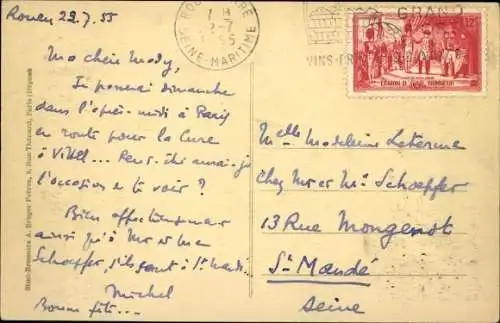 Rouen 22.7.55
Ma chère Mady,
Je passerai dimanche
dans l'après-midi à Paris
en route pour la Cure
à Vittel... Peut-être aurai-je
l'occasion de te voir ?
Bien affectueusement
ainsi qu'à Mr et Me
Schoepfer, s'ils sont à St Mandé...
Michel
Bonne fête...
ROUEN GARE
SEINE-MARITIME
GRAND
VINS-FR
LEGION D'HONNEUR
12F
Melle Madeleine
chez Mr et Me Schoepfer
13 Rue Mongenot
St Mandé
Seine